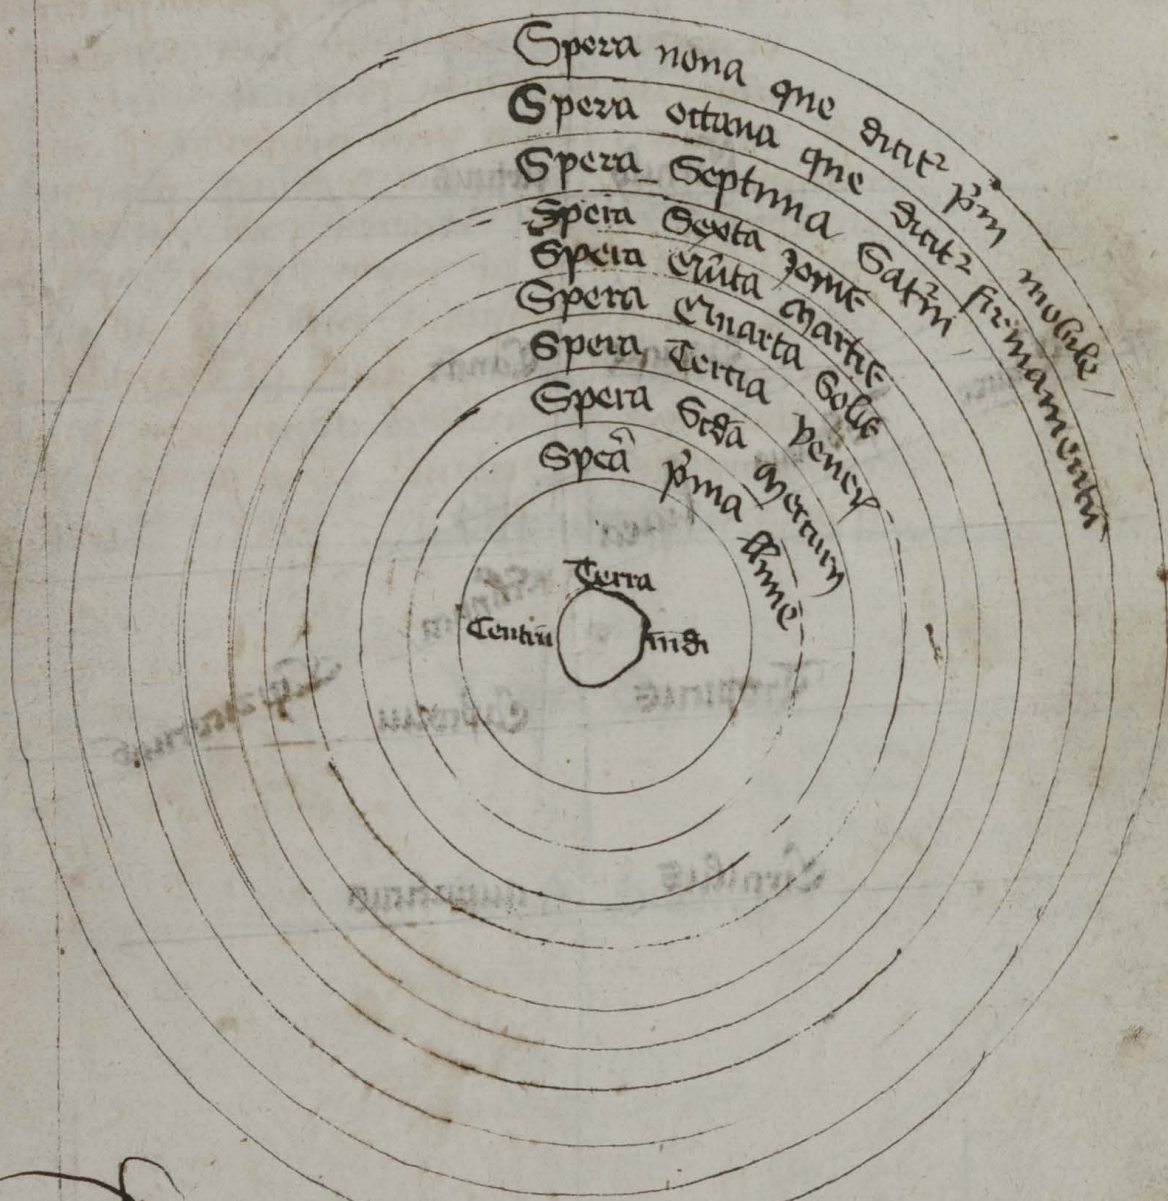 Spera nona que dicit᷑ p̄m mobile
Spera octaua que dicit᷑ firmamentū
Spera Septima Sat᷑ni
Spera Sexta Jouis
Spera Qūta Martis
Spera Quarta Solis
Spera Tercia Veneris
Spera Scd̄a Mercurij
Sperā p̄ma lune
Terra
Centrū mūdi